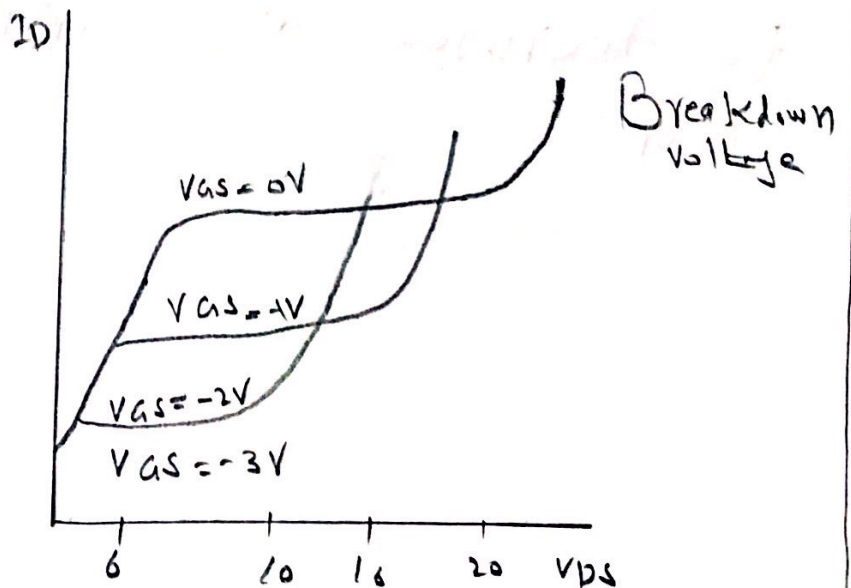 ID
Breakdown
voltage
VGS = 0V
VGS = -1V
VGS = -2V
VGS = -3V
6 10 16 20 VDS